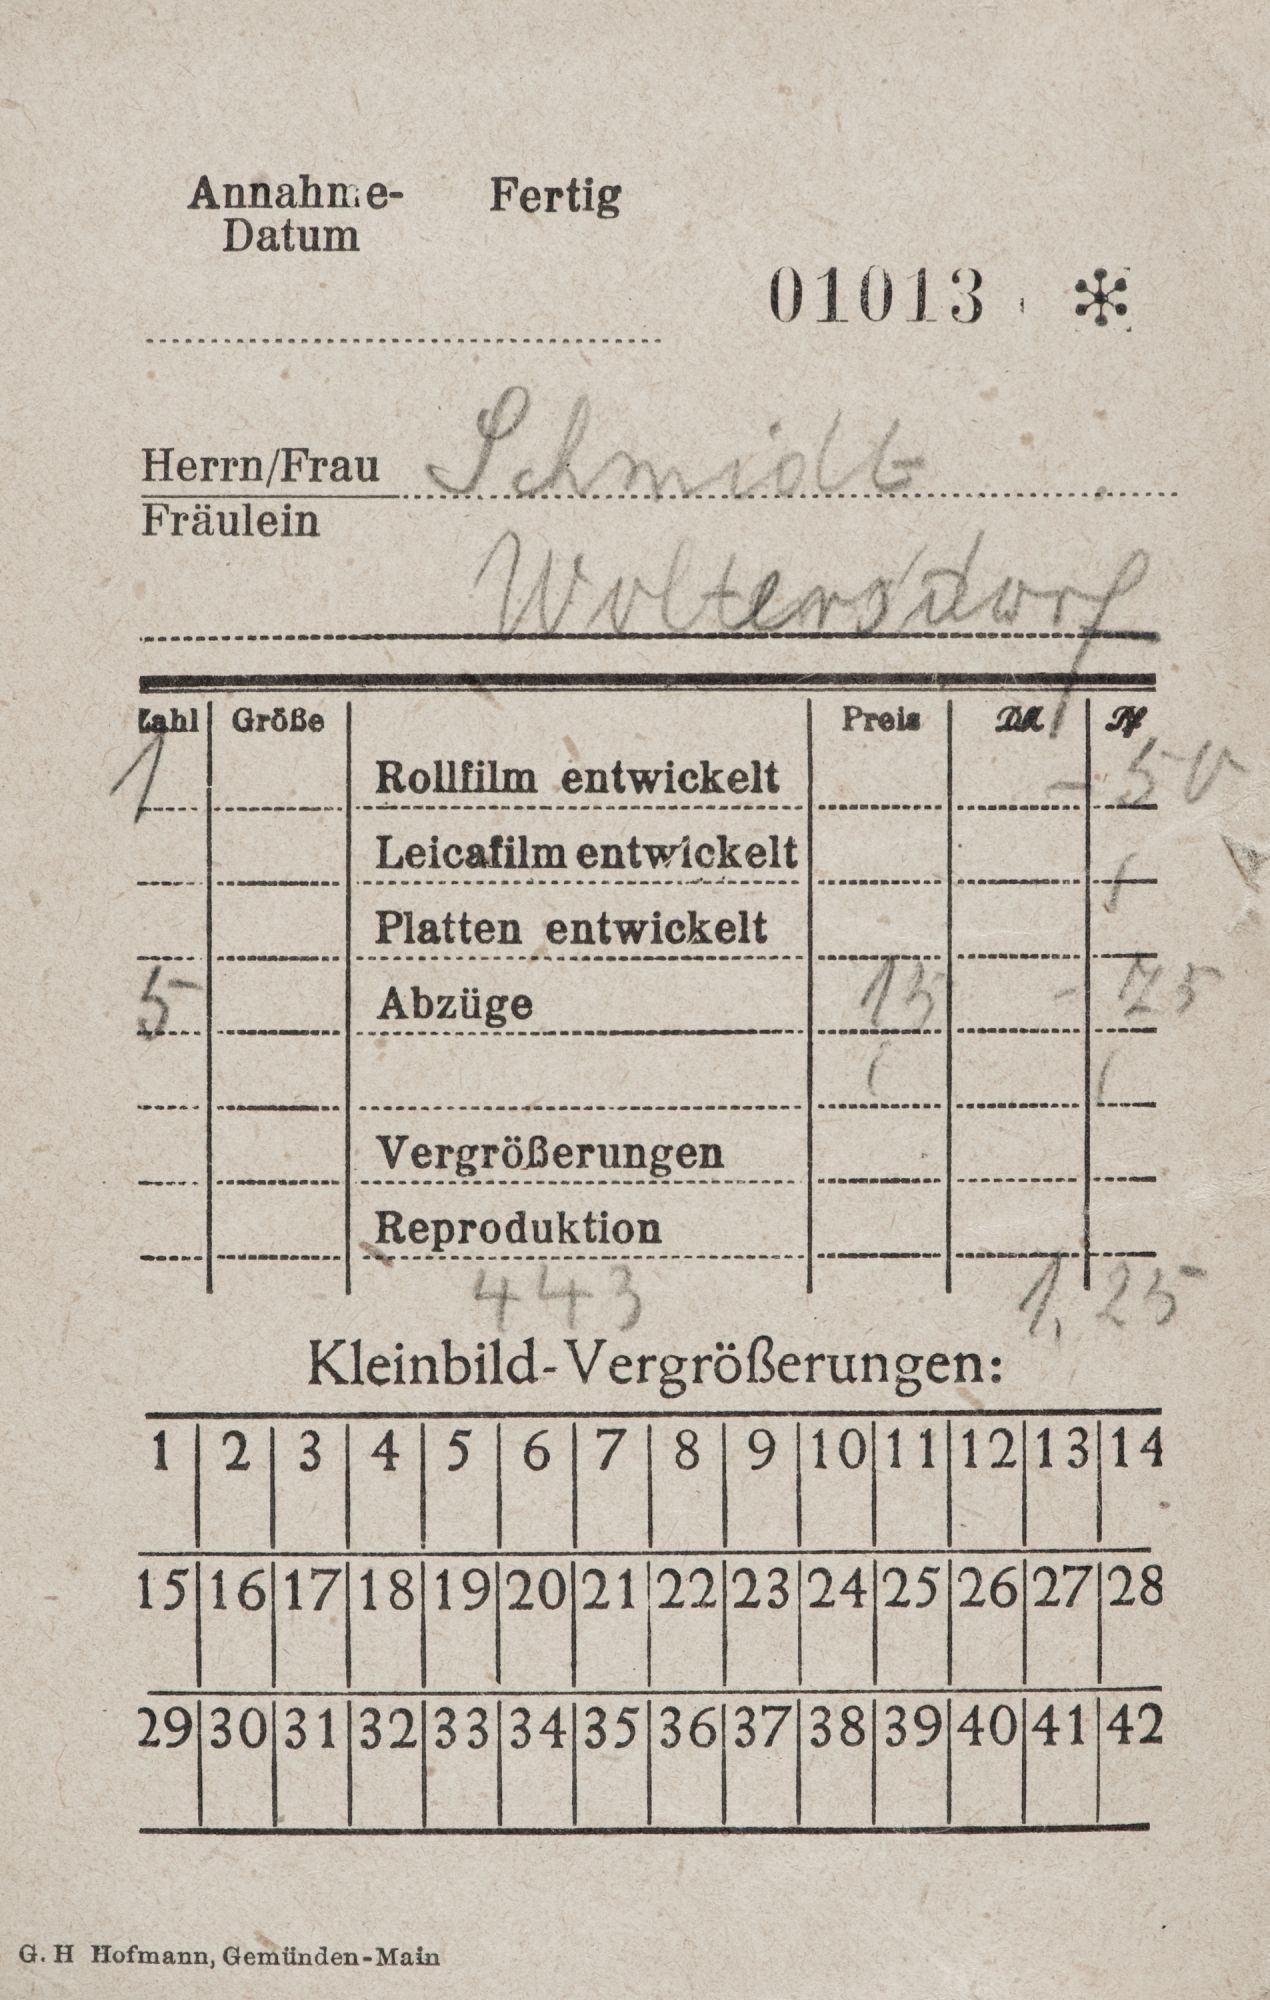 Annahme- Fertig
Datum
01013 *
Herrn/Frau Schmidt
Fräulein
Woltersdorf
Zahl Größe Preis DM Pf
1 Rollfilm entwickelt - 50
Leicafilm entwickelt
Platten entwickelt
5 Abzüge 15 - 75
Vergrößerungen
Reproduktion
443 1,25
Kleinbild-Vergrößerungen:
1 2 3 4 5 6 7 8 9 10 11 12 13 14
15 16 17 18 19 20 21 22 23 24 25 26 27 28
29 30 31 32 33 34 35 36 37 38 39 40 41 42
G. H Hofmann, Gemünden-Main